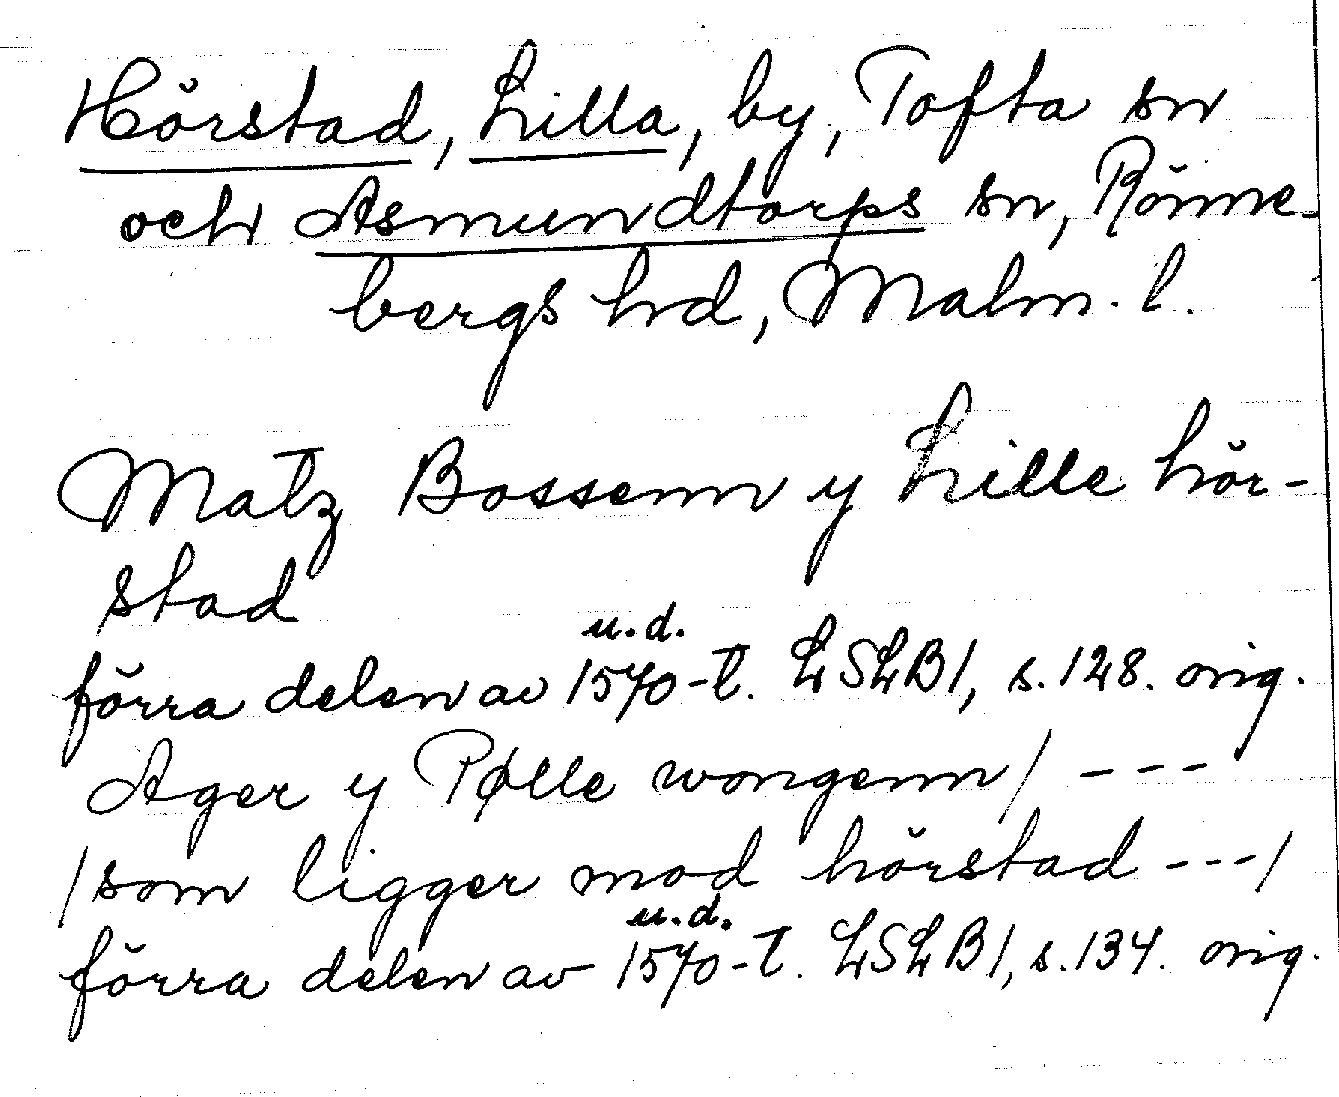 Hörstad, Lilla, by, Tofta sn
och Asmundtorps sn, Rönne-
bergs hd, Malm. l.
Matz Bossenn y Lille hör-
stad
u.d.
förra delen av 1570-t. LSLB1, s. 128. orig.
Ager y Pølle wongenn / ---
/ som ligger mod hörstad --- /
u.d.
förra delen av 1570-t. LSLB1, s. 134. orig.